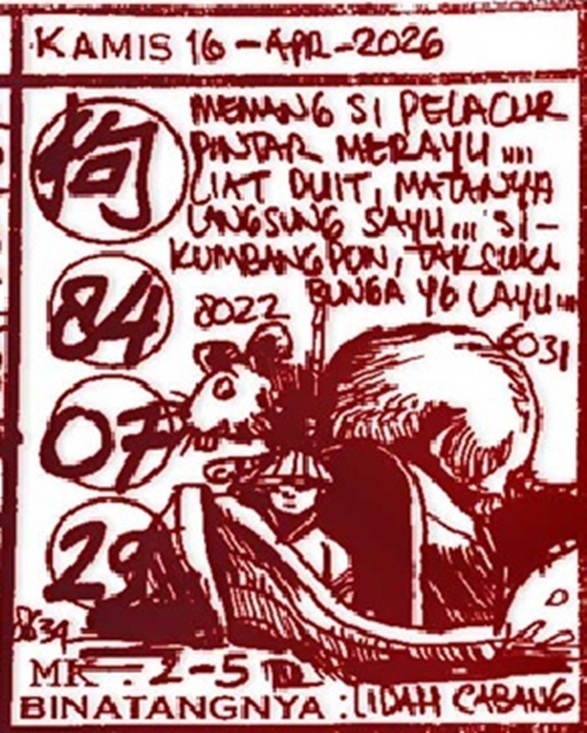 KAMIS 16-APR-2026
狗
MEMANG SI PELACUR
PINTAR MERAYU ....
LIAT DUIT, MATANYA
LANGSUNG SAYU... SI-
KUMBANG PUN, TAK SUKA
BUNGA YG LAYU...
84
8022
6031
07
29
8634
MK : 2-5
BINATANGNYA : LIDAH CABANG